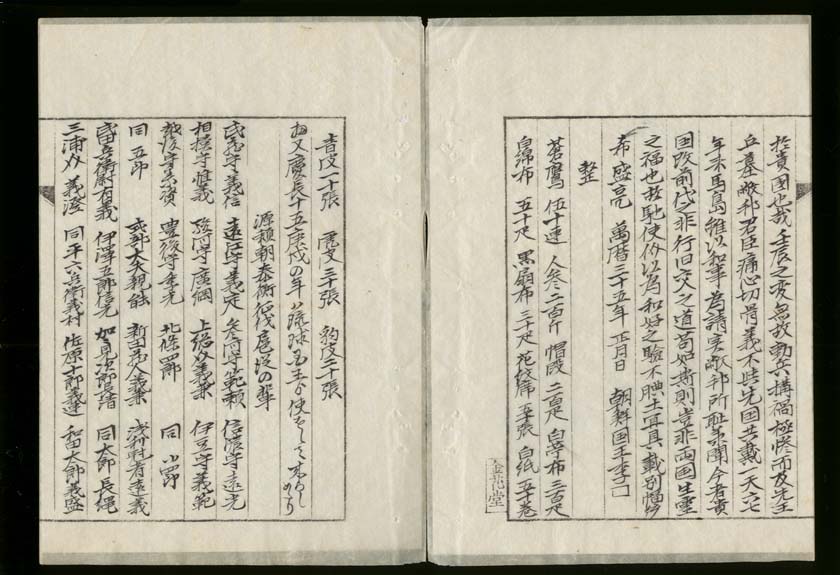 於貴国也哉壬辰之変無故動兵搆禍極惨而及先王
丘墓敝邦君臣痛心切骨義不与先国共戴一天六七
年来馬島雖以和事為請実敝邦所耻承聞今者貴
国改前代非行旧交之道苟如斯則豈非両国生霊
之福也故馳使价以為和好之験不腆土宜具載別幅
希盛亮 萬暦三十五年 正月日 朝鮮国王李
整
蒼鷹 伍十連 人参二百斤 帽段 二百疋 白苧布 三百疋
白綿布 五十疋 黒麻布 三十疋 花紋席 五十張 白紙 五十巻
青皮一十張 虎皮三十張 豹皮三十張
又慶長十五庚戌の年ハ琉球国王ゟ使をして
源頼朝泰衡征伐扈従の輩
武蔵守義信 遠江守義定 参河守範頼 信濃守遠光
相模守惟義 駿河守廣綱 上総介義兼 伊豆守義範
越後守義資 豊後守季光 北條四郎 同 小四郎
同 五郎 式部大夫親能 新田蔵人義兼 浅利冠者遠義
武田兵衛尉有義 伊澤五郎信光 加々見次郎長清 同太郎 長綱
三浦介 義澄 同平六兵衛義村 佐原十郎義連 和田太郎義盛